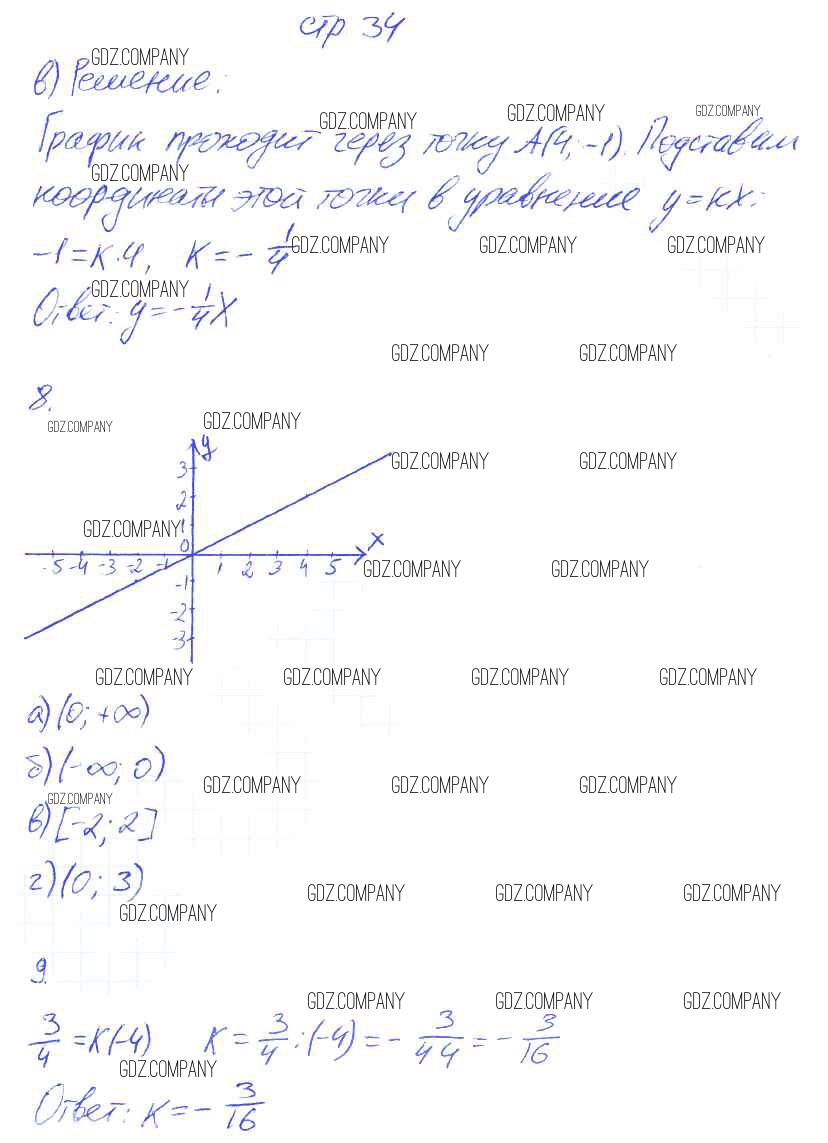 стр 34
GDZ.COMPANY
в) Решение:
GDZ.COMPANY GDZ.COMPANY GDZ.COMPANY
График проходит через точку A(4; -1). Подставим
GDZ.COMPANY
координаты этой точки в уравнение y=кx:
-1=к·4, к=-1/4
GDZ.COMPANY GDZ.COMPANY GDZ.COMPANY
GDZ.COMPANY
Ответ: y=-1/4x
GDZ.COMPANY GDZ.COMPANY
8.
GDZ.COMPANY GDZ.COMPANY
y
3
GDZ.COMPANY GDZ.COMPANY
2
GDZ.COMPANY 1
0 x
-5 -4 -3 -2 -1 1 2 3 4 5
GDZ.COMPANY GDZ.COMPANY
-1
-2
-3
GDZ.COMPANY GDZ.COMPANY GDZ.COMPANY GDZ.COMPANY
а) (0; +∞)
б) (-∞; 0)
GDZ.COMPANY GDZ.COMPANY GDZ.COMPANY
GDZ.COMPANY
в) [-2; 2]
г) (0; 3)
GDZ.COMPANY GDZ.COMPANY GDZ.COMPANY
GDZ.COMPANY
9.
GDZ.COMPANY GDZ.COMPANY GDZ.COMPANY
3/4 =к(-4) к = 3/4 :(-4) = - 3/44 = - 3/16
GDZ.COMPANY
Ответ: к = - 3/16